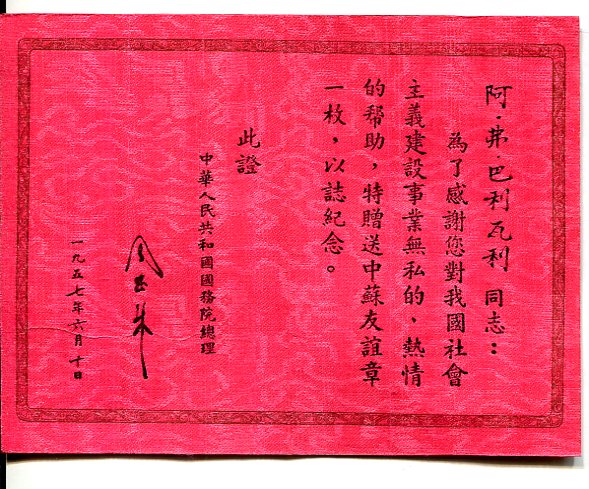 阿·弗·巴利瓦利 同志：
為了感謝您對我國社會
主義建設事業無私的、熱情
的幫助，特贈送中蘇友誼章
一枚，以誌紀念。
此證
中華人民共和國國務院總理
周恩来
一九五七年六月十日